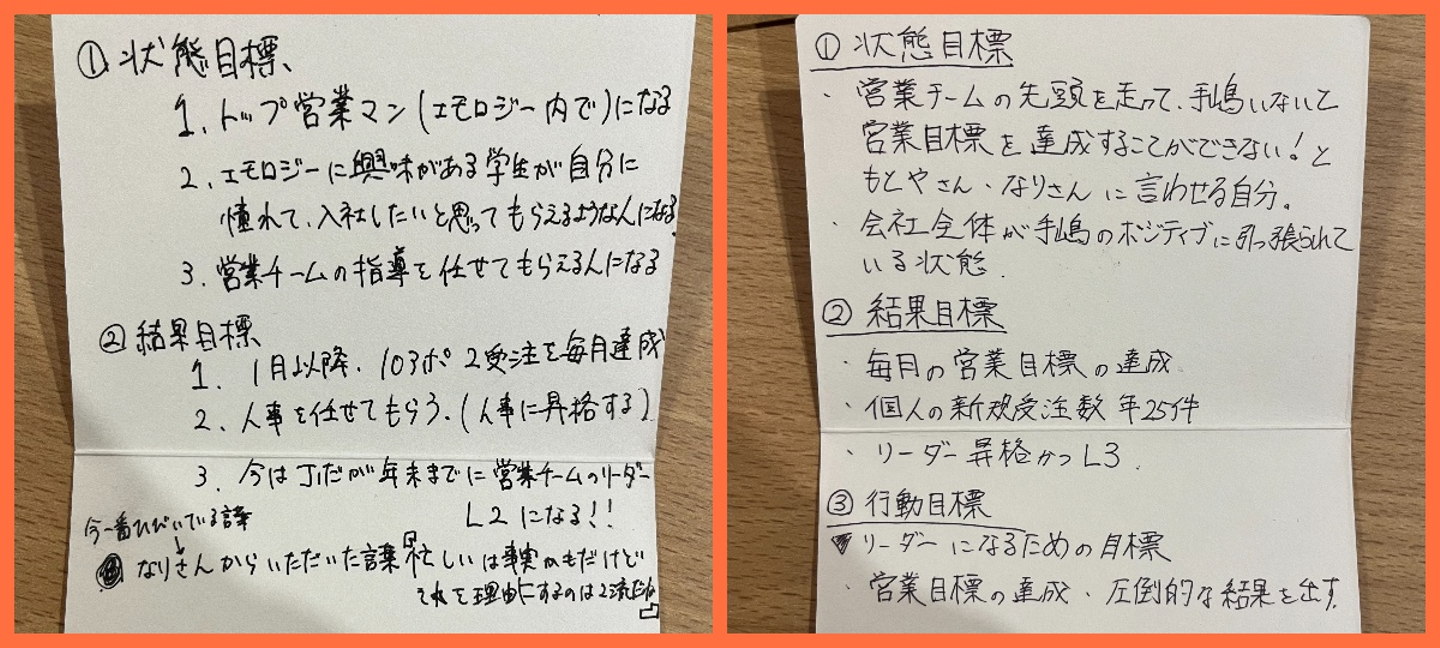 ① 状態目標
1. トップ営業マン(エモロジー内で)になる
2. エモロジーに興味がある学生が自分に
憧れて、入社したいと思ってもらえるような人になる。
3. 営業チームの指導を任せてもらえる人になる
② 結果目標
1. 1月以降、103ポ 2受注を毎月達成
2. 人事を任せてもらう。(人事に昇格する)
3. 今はJ1だが年末までに営業チームのリーダー
L2になる!!
今一番ひびいている言葉
なりさんからいただいた言葉「忙しいは事実かもだけど
それを理由にするのは2流だね」
① 状態目標
・営業チームの先頭を走って、手嶋いないと
営業目標を達成することができない!と
もとやさん、なりさんに言わせる自分。
・会社全体が手嶋のポジティブに引っ張られて
いる状態。
② 結果目標
・毎月の営業目標の達成
・個人の新規受注数 年25件
・リーダー昇格かつL3.
③ 行動目標
▼リーダーになるための目標
・営業目標の達成、圧倒的な結果を出す。